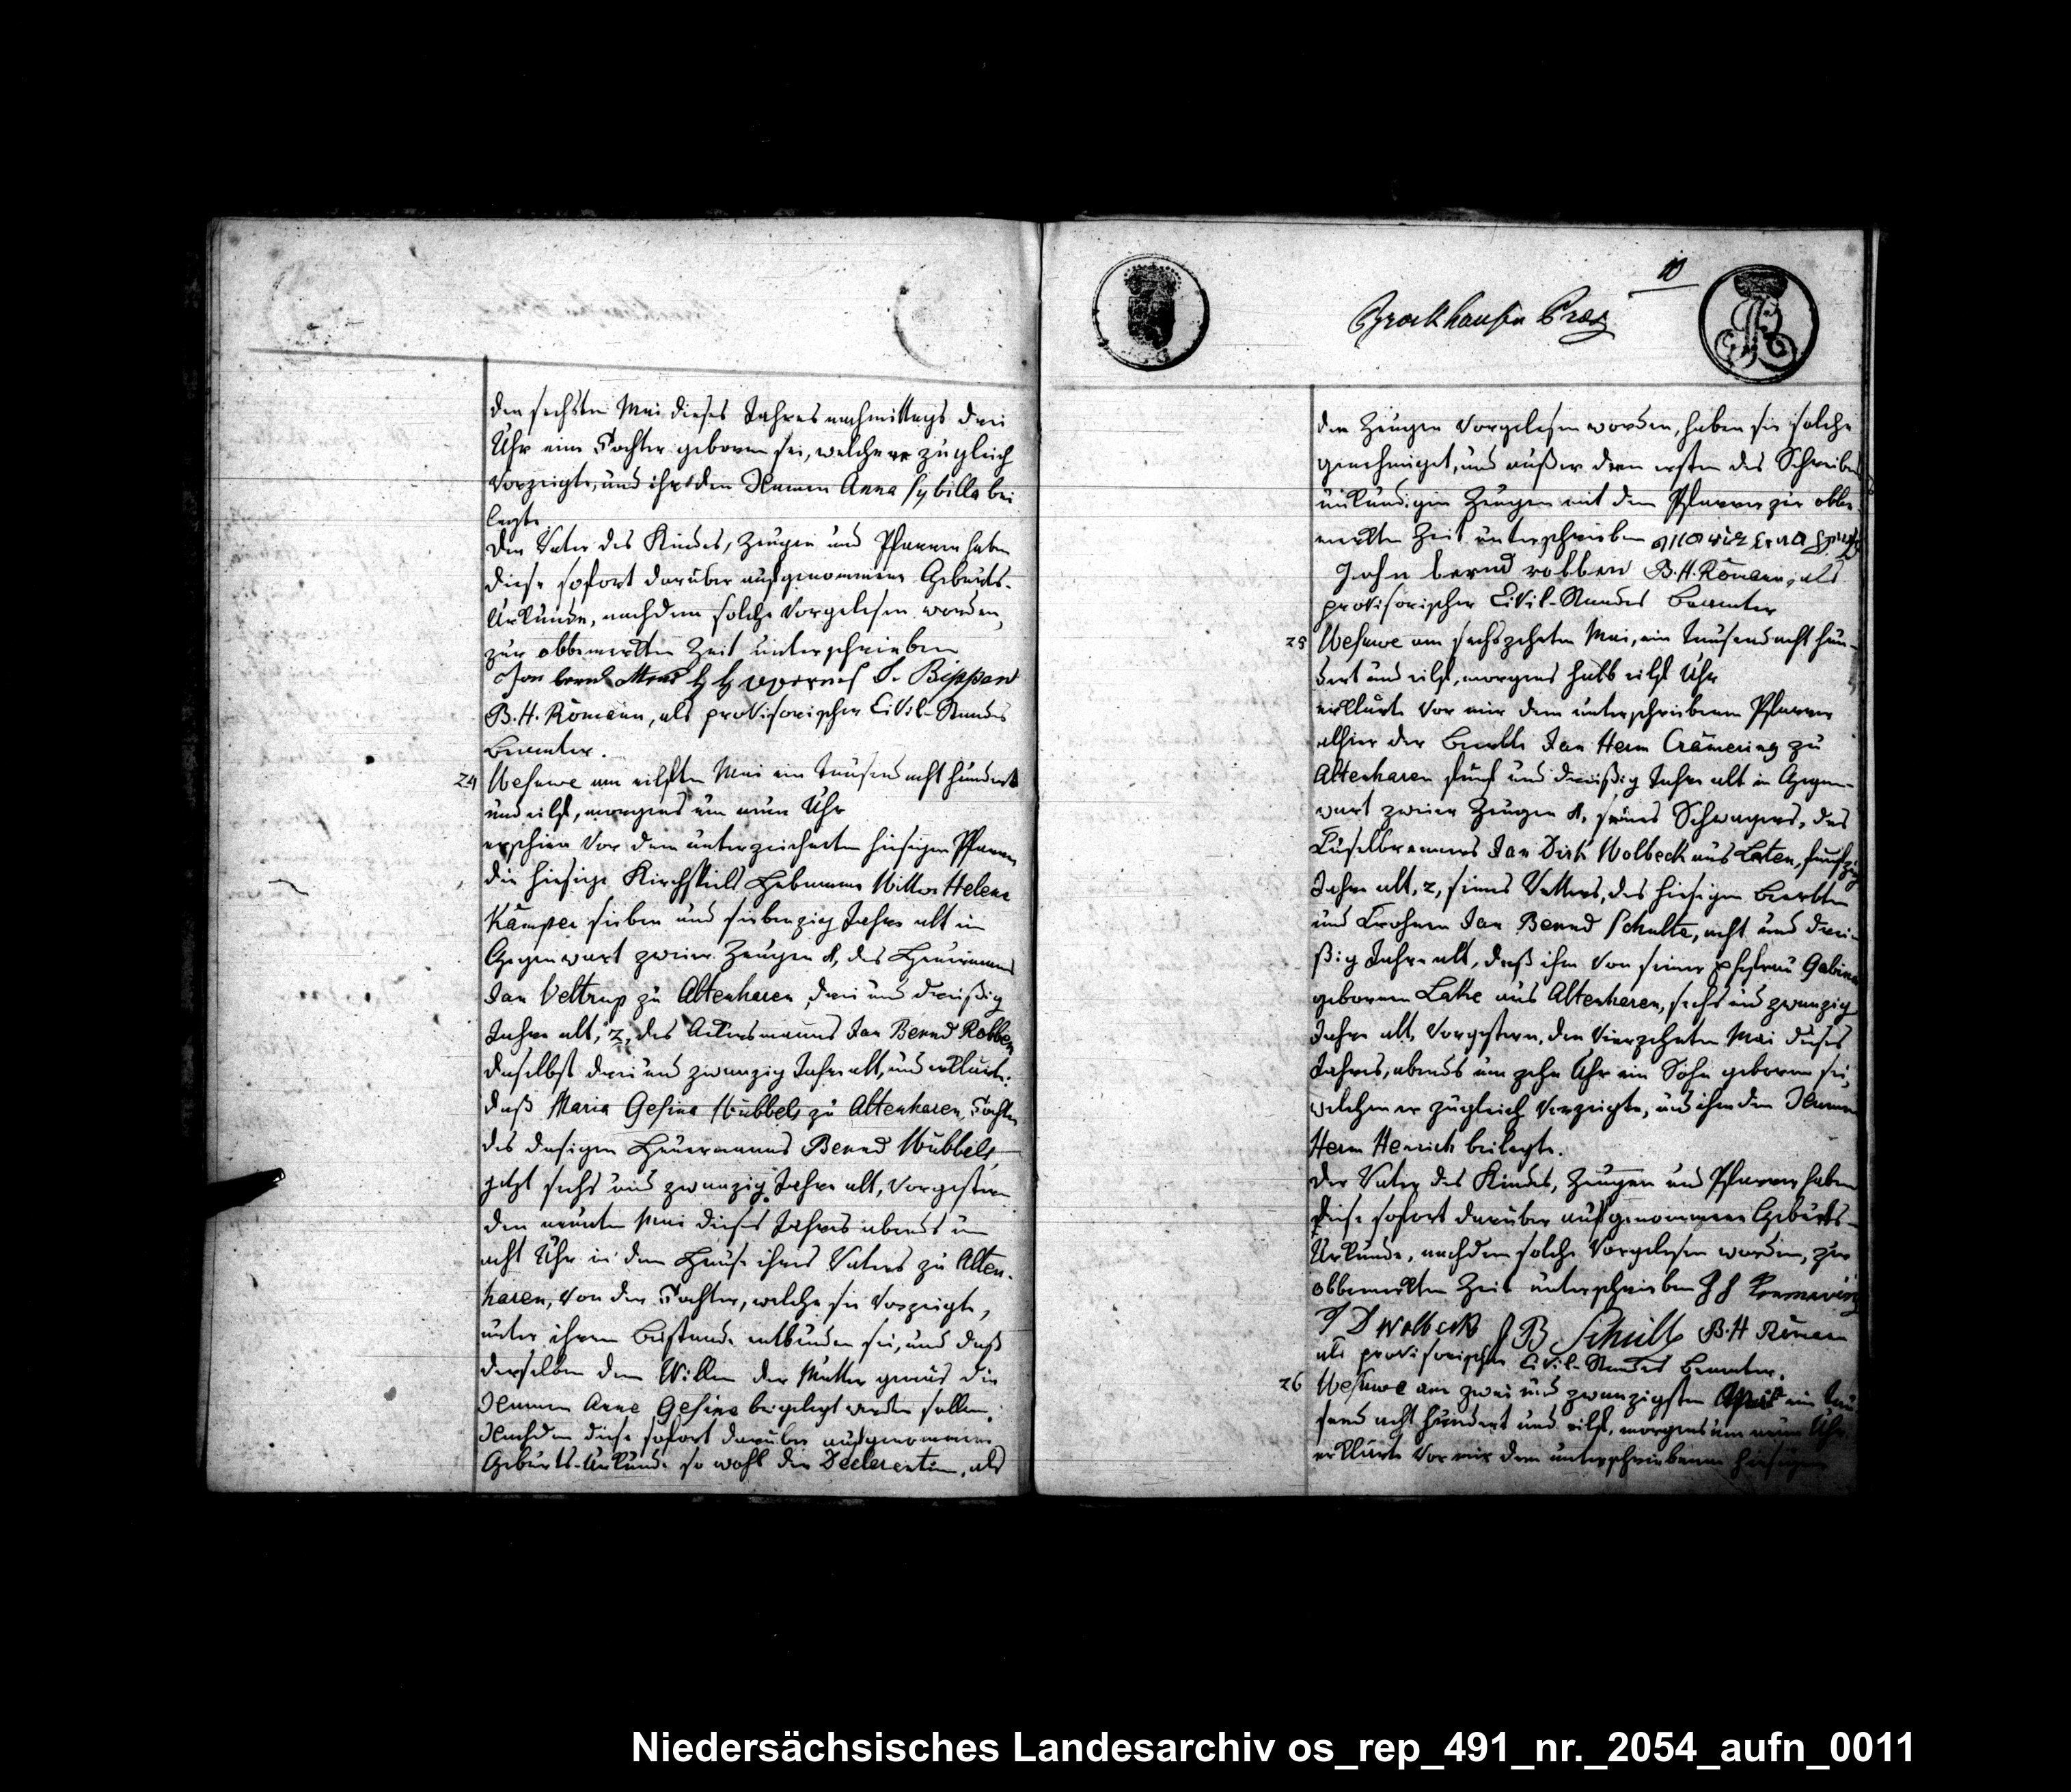 den sechsten Mai dieses Jahres nachmittags drei
Uhr eine Tochter geboren sei, welche er zugleich
vorzeigte, und ihr den Namen Anna Sybilla bei
legte.
Der Vater des Kindes, Zeugen und Pfarrer haben
diese sofort darüber aufgenommene Geburts-
Urkunde, nachdem solche vorgelesen worden,
zur obbemerkten Zeit unterschrieben
Jan bernd
B. H. Römann, als provisorischer Civil-Standes
Beamter.
24 Wesuwe am eilften Mai ein Tausend acht hundert
und eilf, morgens um neun Uhr
erschien vor dem unterzeichneten hiesigen Pfarrer
die hiesige Kirchspiels Hebamme Wittwe Helena
Kämper sieben und siebenzig Jahre alt in
Gegenwart zweier Zeugen 1, des Heuermanns
Jan Veltrup zu Altenharen, drei und dreißig
Jahre alt, 2, des Ackersmanns Jan Bernd Robben
daselbst drei und zwanzig Jahre alt, und erklärte.
daß Maria Gesina Wubbels zu Altenharen, Tochter
des dasigen Heuermanns Bernd Wubbels,
jetzt sechs und zwanzig Jahre alt, vorgestern
den neunten Mai dieses Jahres abends um
acht Uhr in dem Hause ihres Vaters zu Alten-
haren, von der Tochter, welche sie vorzeigte,
unter ihrem Beistande entbunden sei, und daß
derselben dem Willen der Mutter gemäs die
Namen Anna Gesina beigelegt werden sollen.
Nachdem diese sofort darüber aufgenommene
Geburts-Urkunde so wohl der Declarantin, als
10
Brockhausen Præs
den Zeugen vorgelesen worden, haben sie solche
genehmiget, und außer dem ersten des Schreibens
unkundigen Zeugen mit dem Pfarrer zur obbe-
merkten Zeit unterschrieben
Jahn bernd robben B. H. Römann, als
provisorischer Civil-Standes Beamter
25 Wesuwe am sechszehnten Mai, ein Tausend acht hun-
dert und eilf, morgens halb eilf Uhr
erklärte vor mir dem unterschriebenen Pfarrer
alhier der Beerbte Jan Herm Crämering zu
Altenharen fünf und dreißig Jahre alt in Gegen-
wart zweier Zeugen 1, seines Schwagers, des
Fuselbrenners Jan Dirk Wolbeck aus Laten, funfzig
Jahre alt, 2, seines Vetters, des hiesigen Beerbten
und Frohnen Jan Bernd Schulte, acht und drei-
ßig Jahre alt, daß ihm von seiner Ehefrau Gabina
gebornen Lake aus Altenharen, sechs und zwanzig
Jahre alt, vorgestern, den vierzehnten Mai dieses
Jahres, abends um zehn Uhr ein Sohn geboren sei,
welchen er zugleich vorzeigte, und ihm den Namen
Herm Henrich beilegte.
Der Vater des Kindes, Zeugen und Pfarrer haben
diese sofort darüber aufgenommene Geburts-
Urkunde, nachdem solche vorgelesen worden, zur
obbemerkten Zeit unterschrieben
J D Wolbeck J B Schulte B. H Römann
als provisorischer Civil-Standes Beamter.
26 Wesuwe am zwei und zwanzigsten ein Tau
send acht hundert und eilf, morgens um neun Uhr
erklärte vor mir dem unterschriebenen hiesigen
Niedersächsisches Landesarchiv os_rep_491_nr._2054_aufn_0011